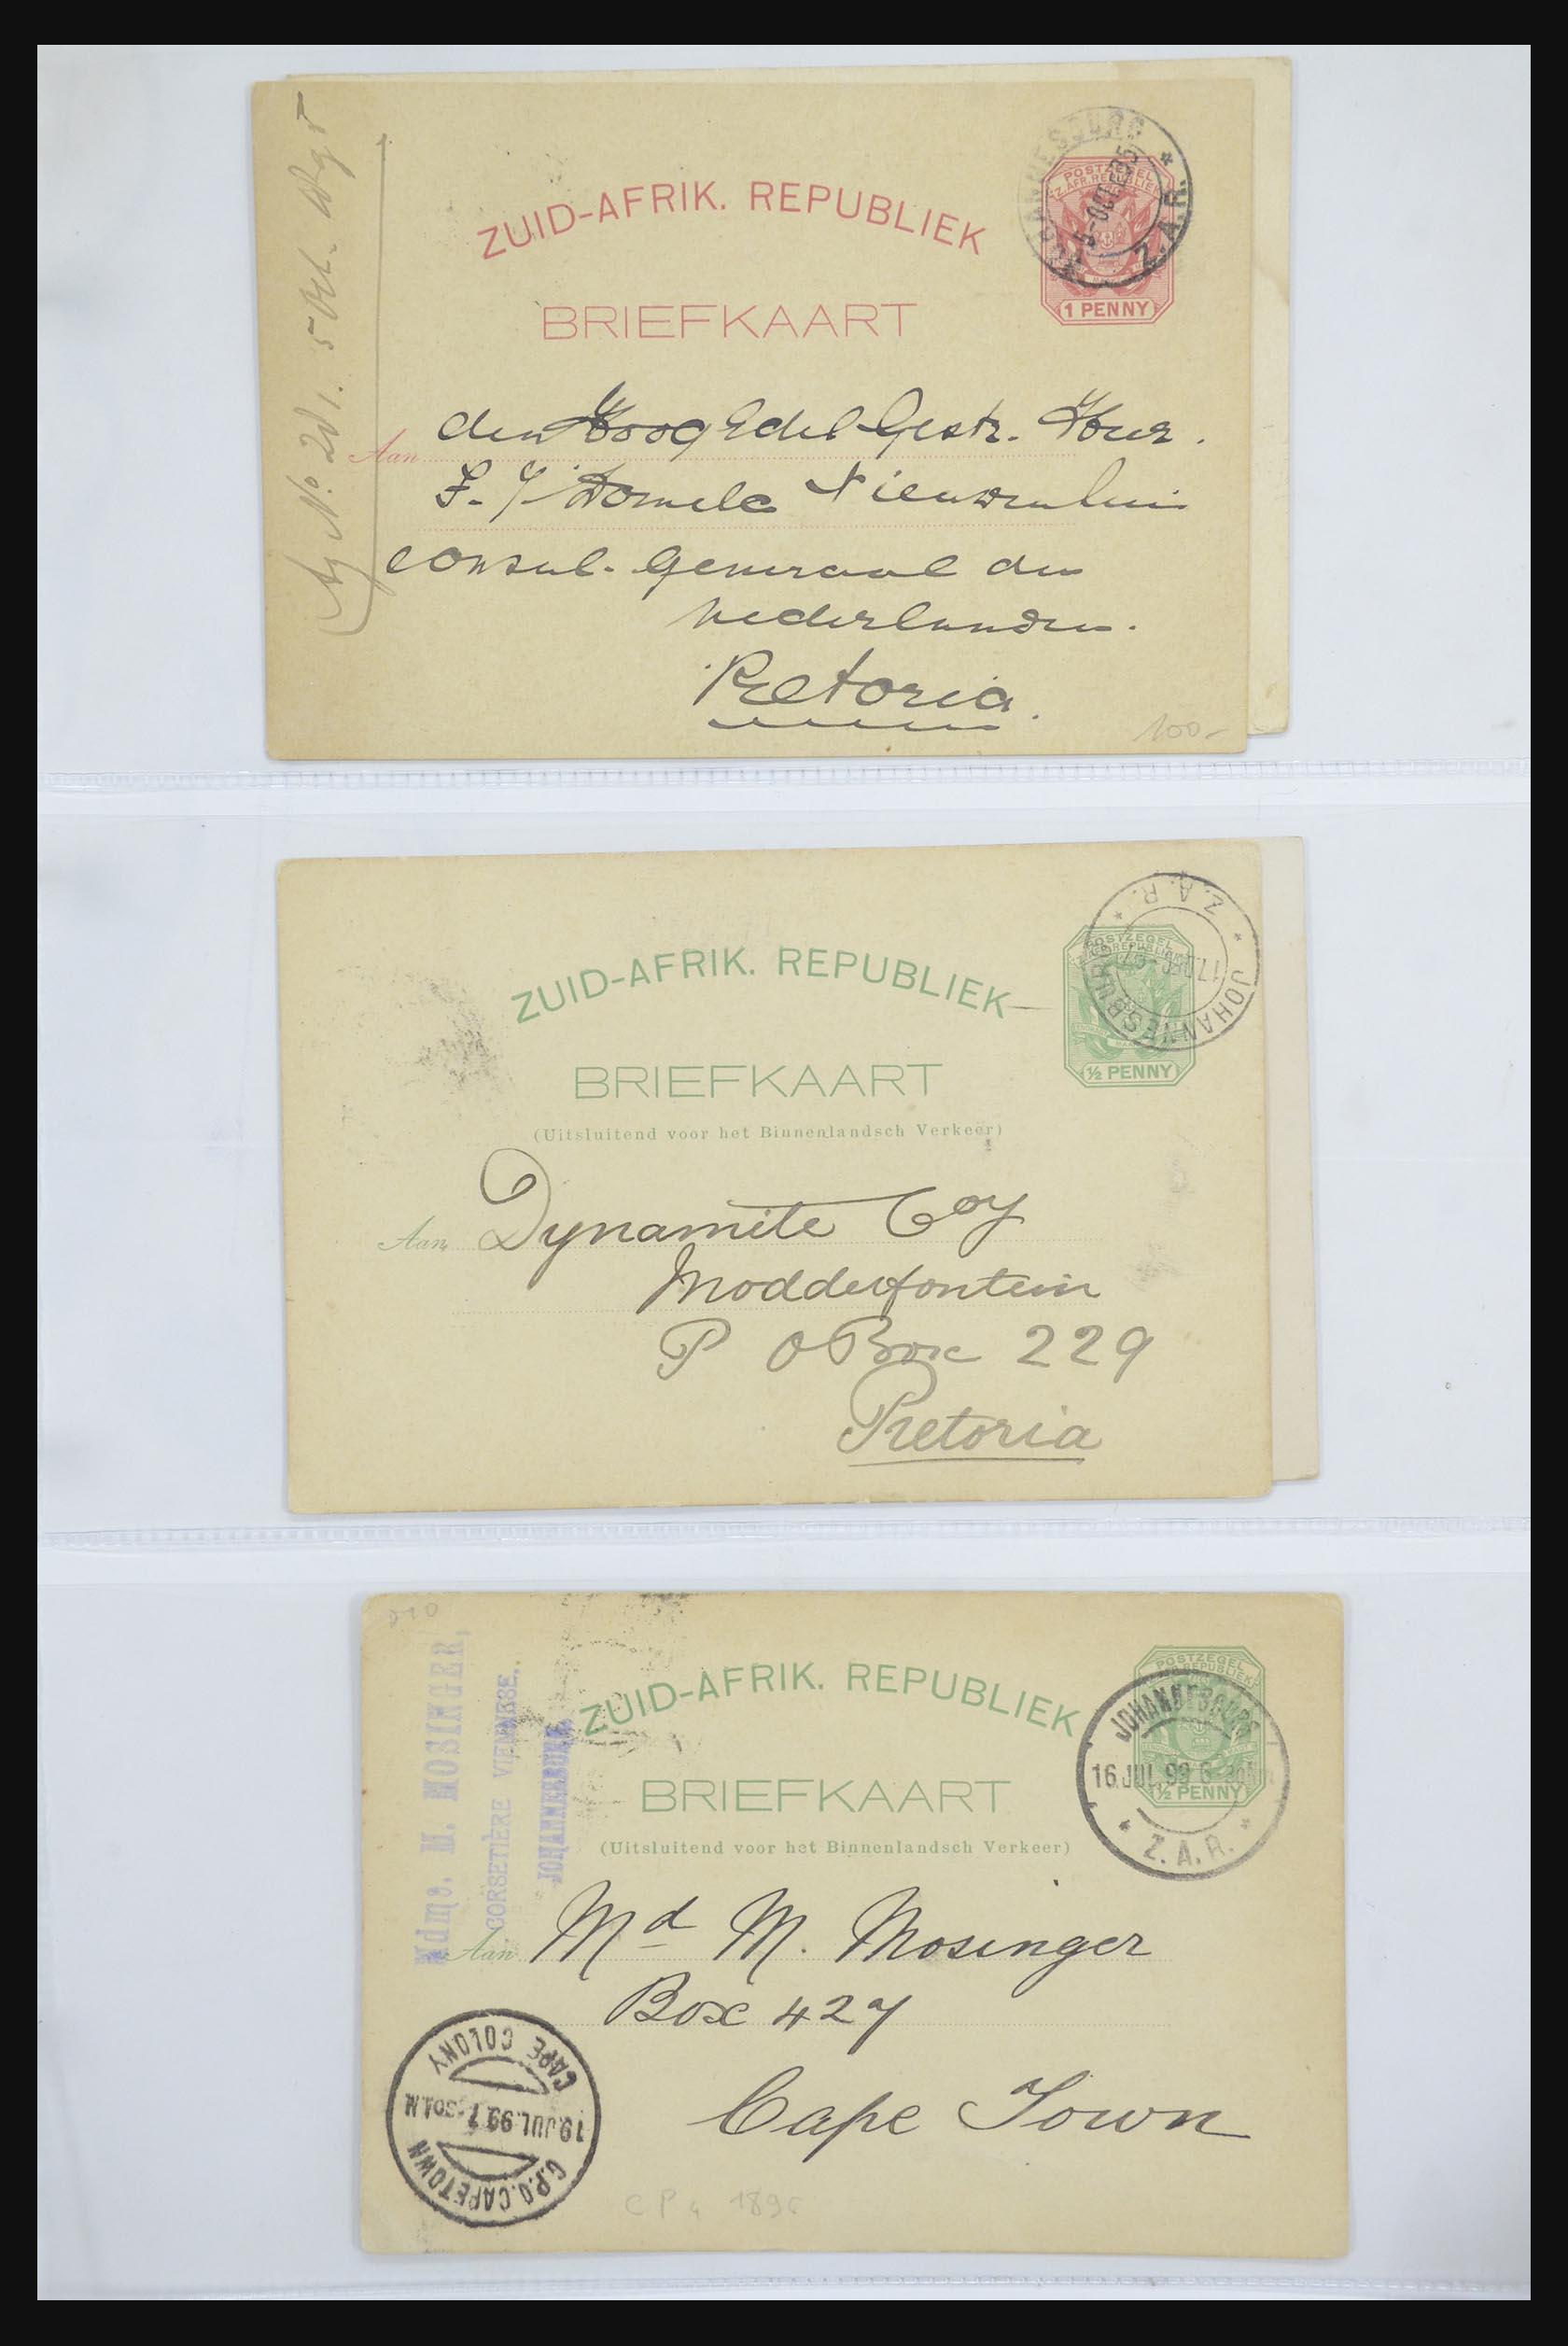 ZUID-AFRIK. REPUBLIEK
POSTZEGEL
Z.AFR.REPUBLIEK
1 PENNY
JOHANNESBURG
Z.A.R.
BRIEFKAART
Aan den Hoog Edel Gestr. Heer.
Domela Nieuwenhuis
Consul-Generaal der
Nederlanden.
Pretoria.
100-
ZUID-AFRIK. REPUBLIEK
POSTZEGEL
½ PENNY
JOHANNESBURG
Z.A.R.
BRIEFKAART
(Uitsluitend voor het Binnenlandsch Verkeer)
Aan Dynamite Coy
Modderfontein
P O Box 229
Pretoria
Mdme. M. MOSINGER,
CORSETIÈRE VIENNESE.
JOHANNESBURG.
ZUID-AFRIK. REPUBLIEK
POSTZEGEL
½ PENNY
JOHANNESBURG
16.JUL.99 6
Z.A.R.
BRIEFKAART
(Uitsluitend voor het Binnenlandsch Verkeer)
Aan Md M. Mosinger
Box 427
Cape Town
G.P.O. CAPETOWN
19.JUL.99 7.30A.M
CAPE COLONY
CP4 1896